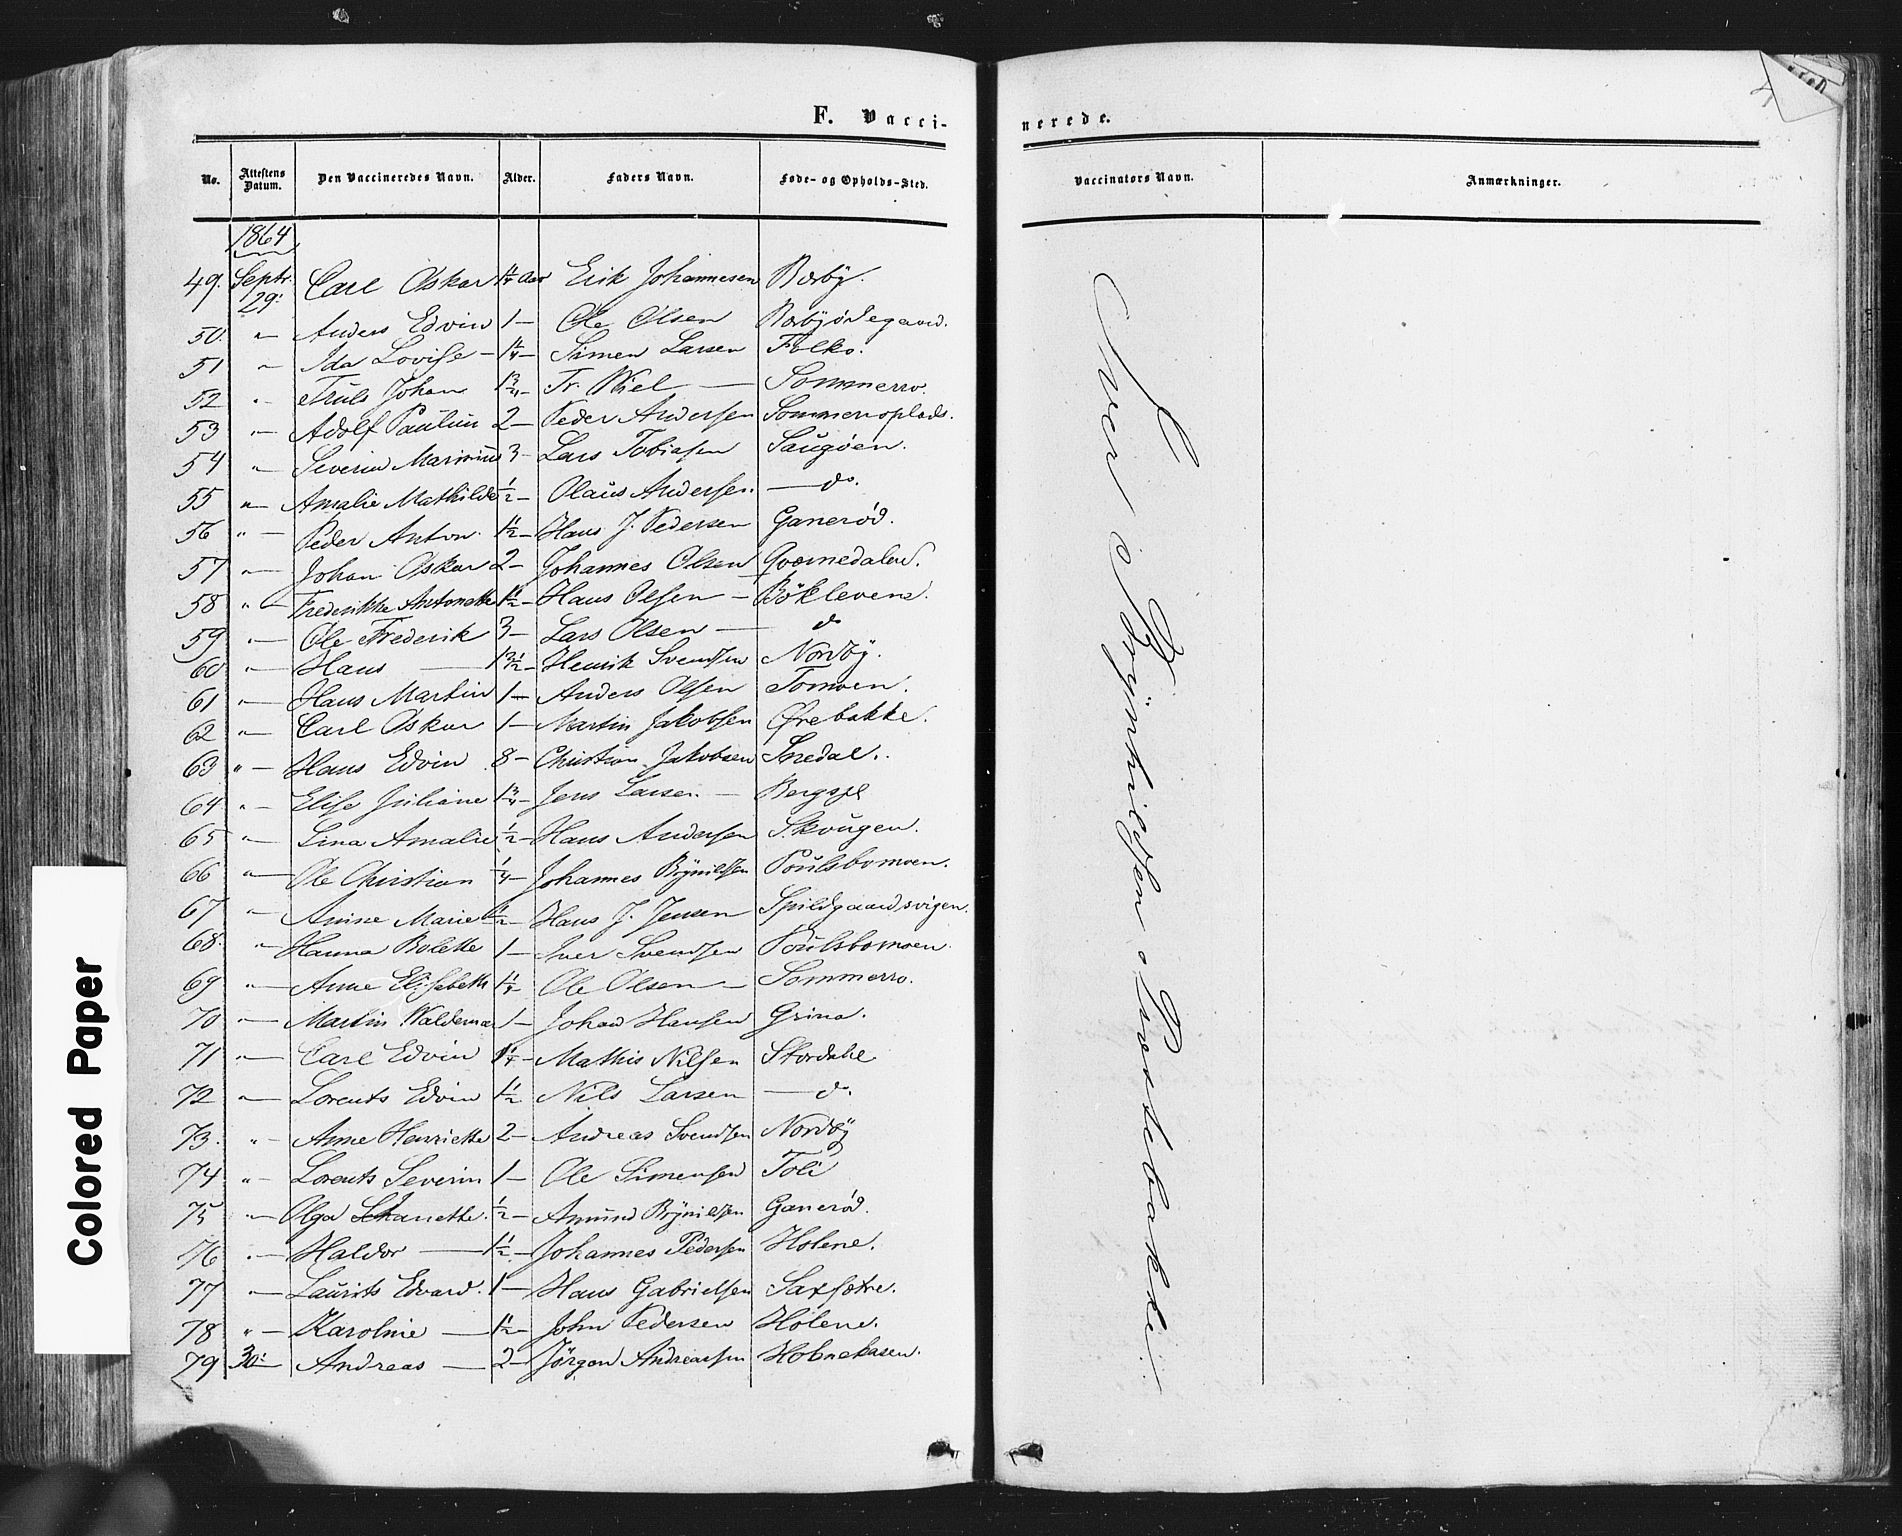 F. Vacci-
nerede.
No. Attestens Datum. Den Vaccineredes Navn. Alder. Faders Navn. Føde- og Opholds-Sted. Vaccinators Navn. Anmærkninger.
1864
49. Septr. 29: Carl Oskar 1¼ Aar Erik Johannesen Bærby.
50. " Anders Edvin 1 — Ole Olsen Bærbyødegaard.
51 " Ida Lovise — 1¼ — Simen Larsen Folko.
52 " Truls Johan 1¾ — Fr. Wiel — Sommerro.
53 " Adolf Paulin 2 — Peder Andersen Sommerroplads.
54 " Severin Marinius 3 - Lars Tobiasen Saugøen.
55 " Amalie Mathilde ½ — Olaus Andersen — do.
56 " Peder Anton 1½ — Hans J. Pedersen Ganerød.
57 " Johan Oskar 2 - Johannes Olsen Qværnedalen.
58 " Frederikke Antonette 1½ — Hans Olsen — Bøklevene.
59 " Ole Frederik 3 — Lars Olsen — do
60 " Hans — 1½ — Henrik Svendsen Nordby.
61 " Hans Martin 1 — Anders Olsen Tomoen.
62 " Carl Oskar 1 — Martin Jakobsen Ørebakke.
63 " Hans Edvin 8 — Christian Jakobsen Snedal.
64 " Elise Juliane 1¾ — Jens Larsen — Bergspl
65 " Lina Amalie ½ — Hans Andersen Skougen.
66 " Ole Christian ¼ — Johannes Brynildsen Poulsbomoen.
67 " Anne Marie ½ — Hans J. Jensen Spildgaardsvigen.
68. " Hanna Bolette 1 — Iver Svendsen Poulsbomoen
69 " Anne Elisabeth 1¼ Ole Olsen — Sommerro.
70 " Martin Waldemar 1 — Johan Hansen Grina.
71 " Carl Edvin 1¼ — Mathis Nilsen Stordale
72 " Lorents Edvin 1½ — Nils Larsen — do.
73. " Anne Henriette 2 — Andreas Svendsen Nordby
74 " Lorents Severin 1 — Ole Simensen Toli
75 " Olga ½ — Amund Brynildsen Ganerød.
76 " Haldor — 1½ — Johannes Pedersen Holene.
77 " Laurits Edvard. 1 — Hans Gabrielsen Saxsætre.
78 " Karoline — 1½ — John Pedersen Holene.
79 30: Andreas — 2 — Jørgen Andreassen Holnekasen.
Iver Brynhildsen Portebakke
Colored Paper